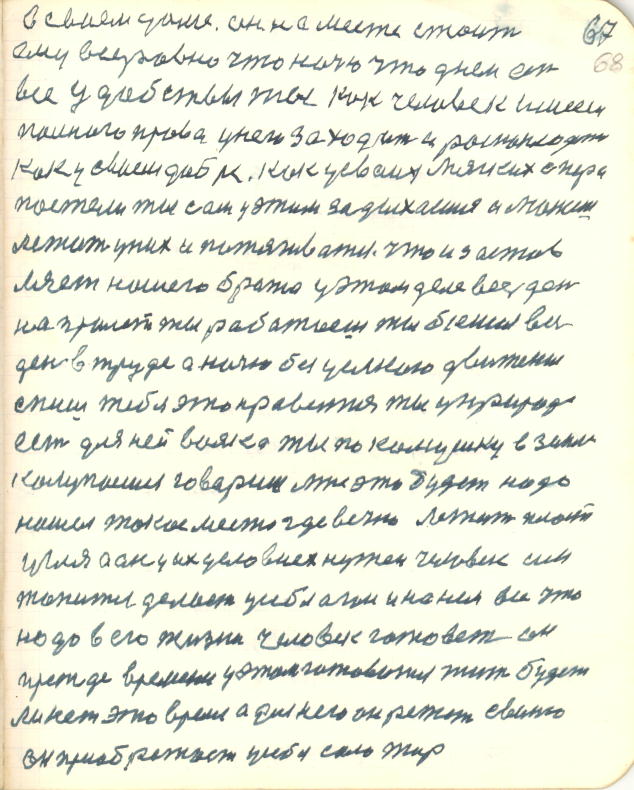 в своем доме. он. на месте стоит 67
ему всеравно что ночю что днем он 68
все удобствы ты как человек имееш
полного права у него заходит и роспологат
как у своем добре. как у своих мягких с пера
постели ты сам у этим задыхаешся и можеш
лежат у них и потягиватся. что и застов
ляет нашего брата у этом деле весь ден
на пролет ты работаеш ты бешся вес
ден в труде а ночю без усякого движения
спиш тебя это нравется ты у природе
ест для ней вояка ты по камушку в земле
колупаешся говариш мне это будет надо
нашел такое место где вечно лежит пласт
угля а он у их условиех нужен человек им
топится делает уси благои и на нем все что
надо в его жизни человек готовет он
прежде времени у этом готовится жит будет
ли нет это время а для него он режет свиню
он приобретает у себя сало жир